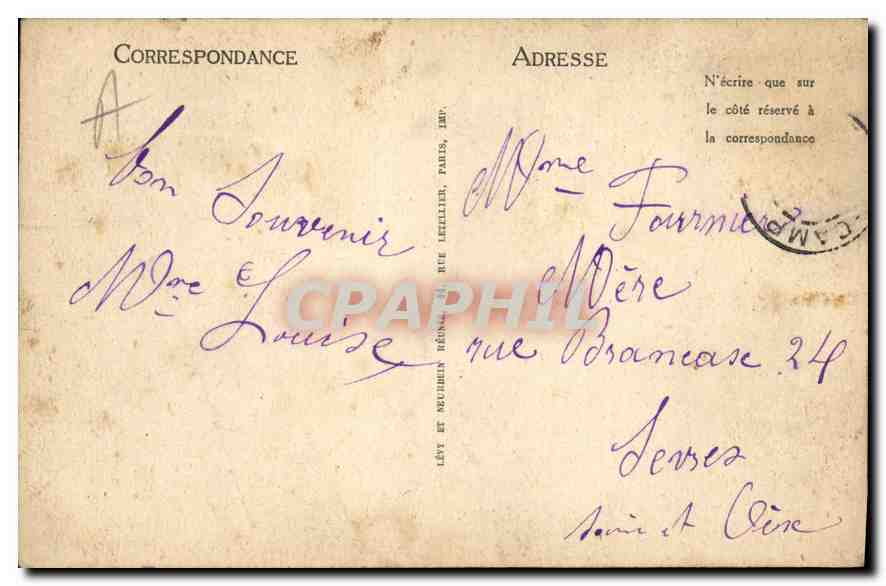 CORRESPONDANCE
A
bon
Souvenir
Mme
Louise
LÉVY ET NEURDEIN RÉUNIS, 44, RUE LETELLIER, PARIS, IMP.
ADRESSE
N'écrire que sur
le côté réservé à
la correspondance
CAMP
Mme Fournier
Mère
rue Brancase 24
Sevres
Seine et Oise
CPAPHIL